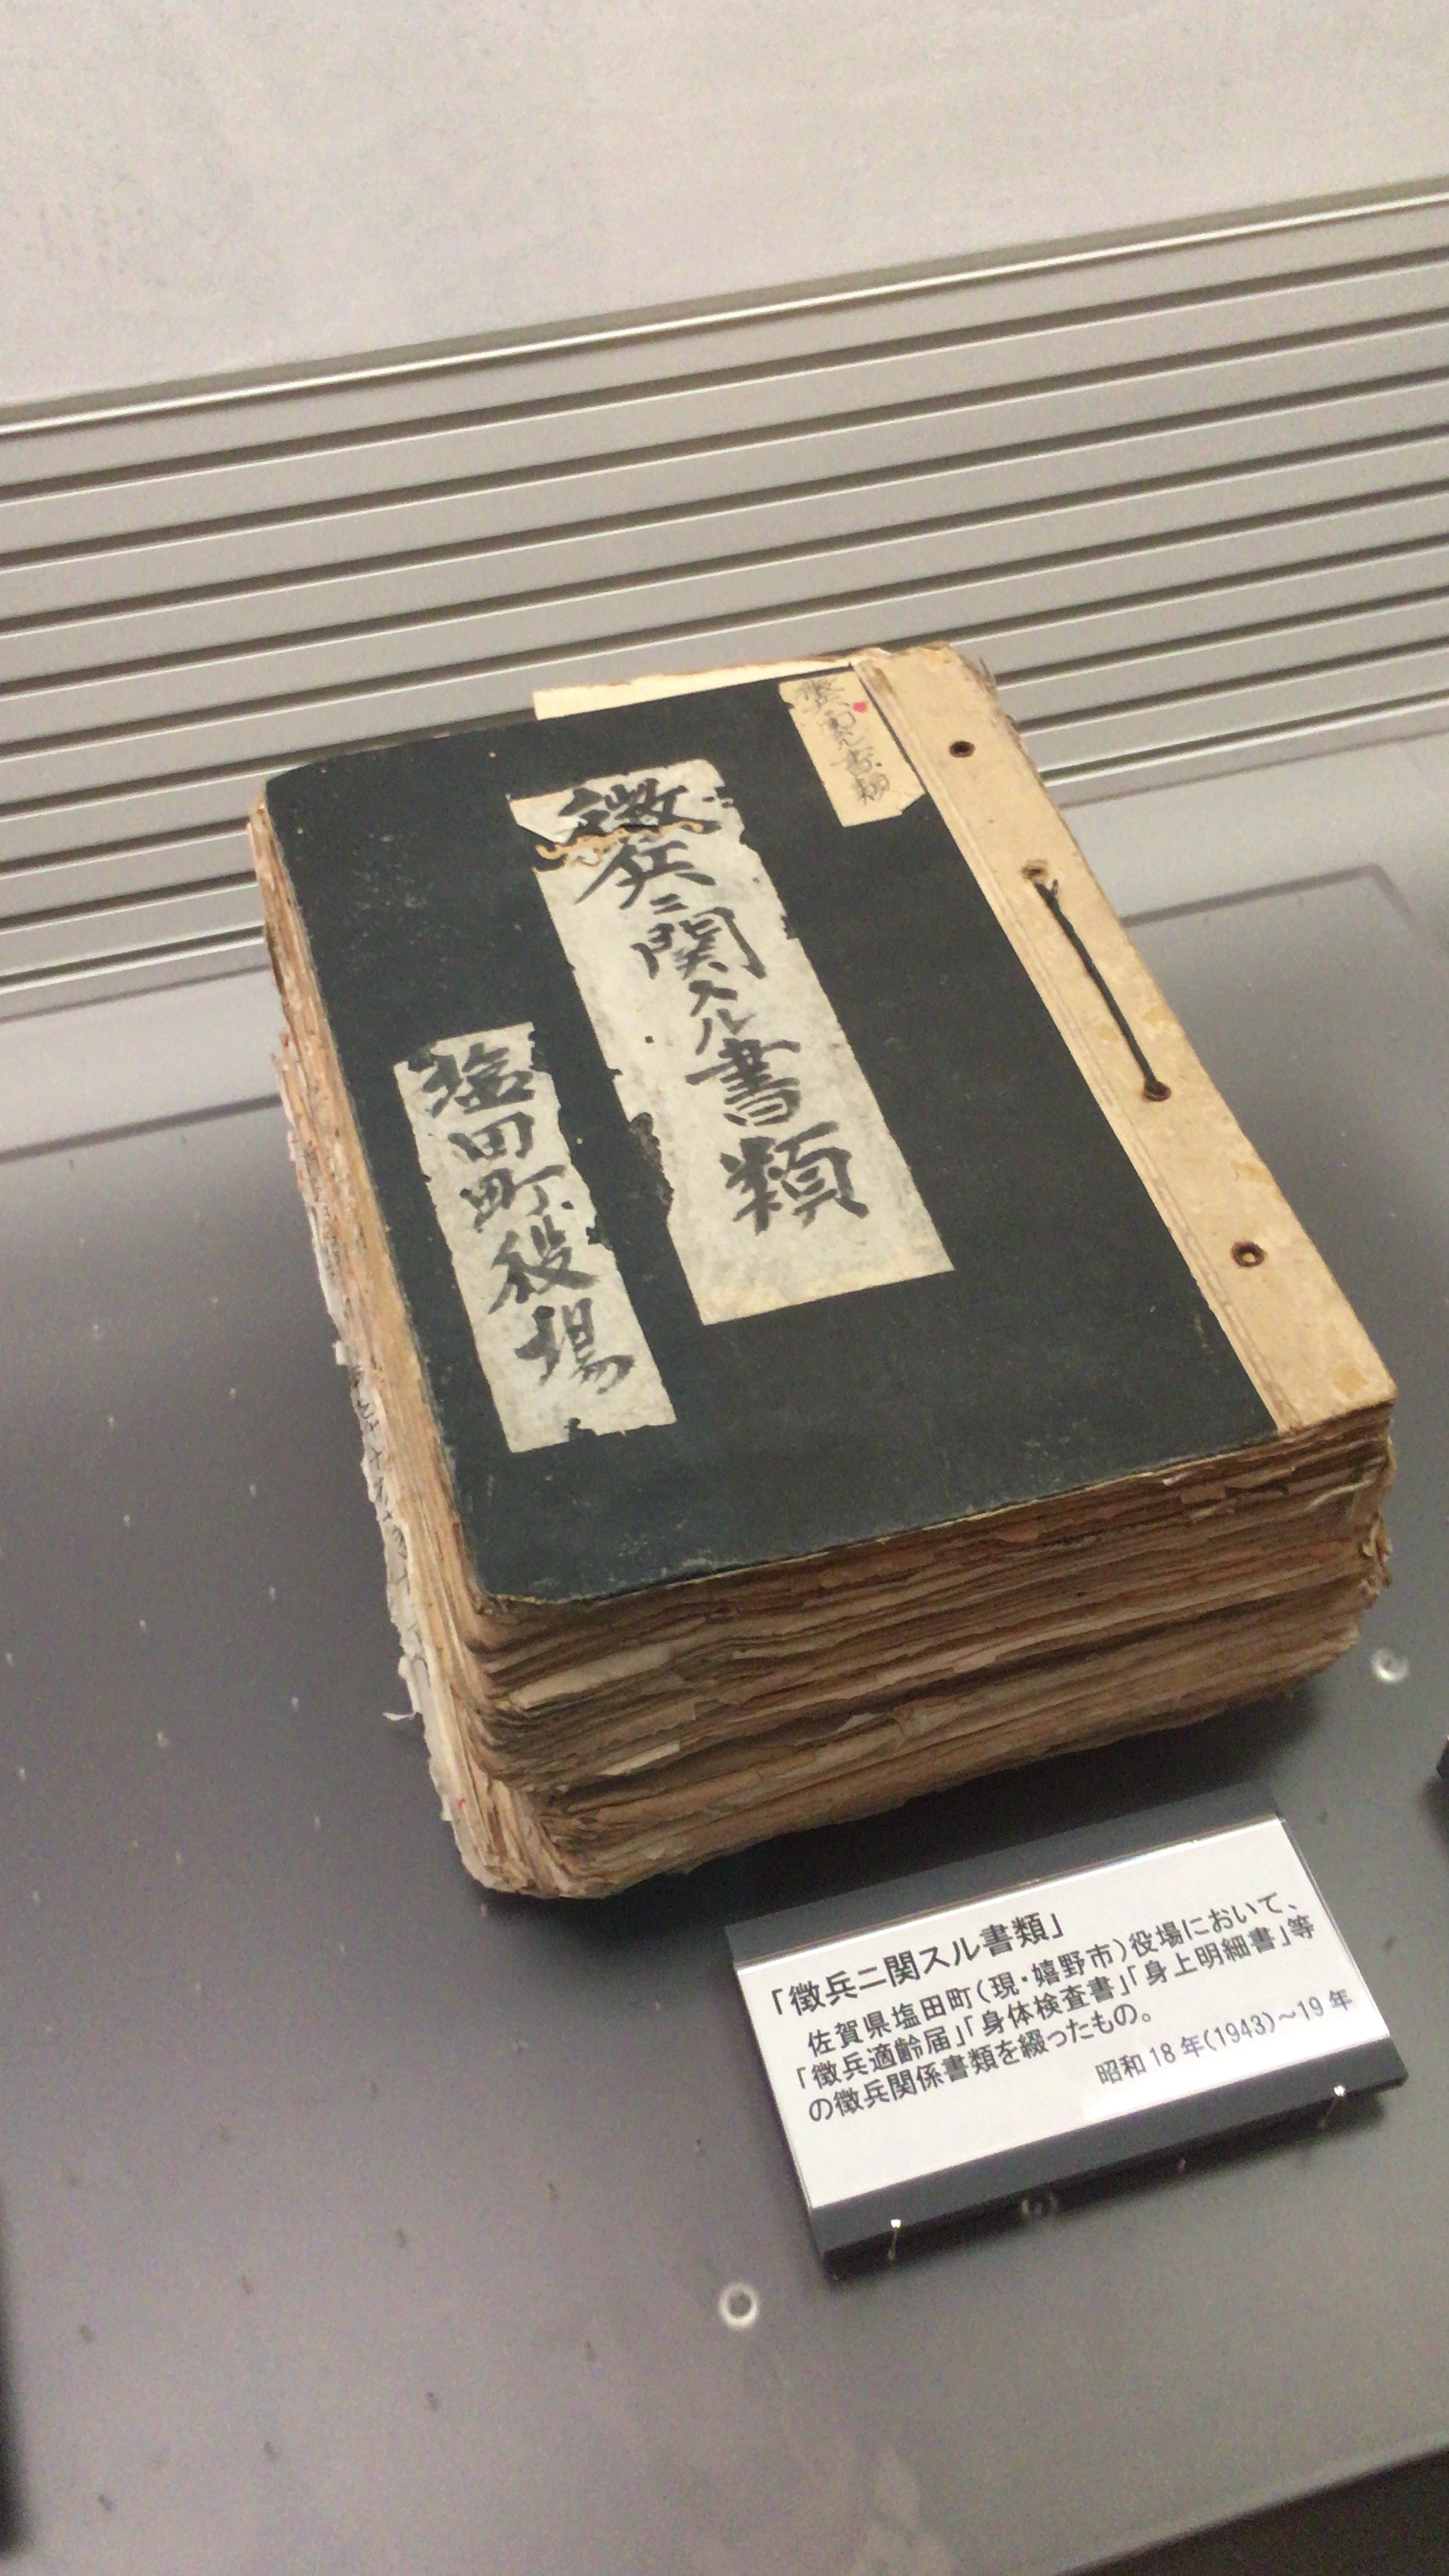 徴兵ニ関スル書類
塩田町役場
「徴兵ニ関スル書類」
佐賀県塩田町(現・嬉野市)役場において、
「徴兵適齢届」「身体検査書」「身上明細書」等
の徴兵関係書類を綴ったもの。
昭和18年(1943)～19年